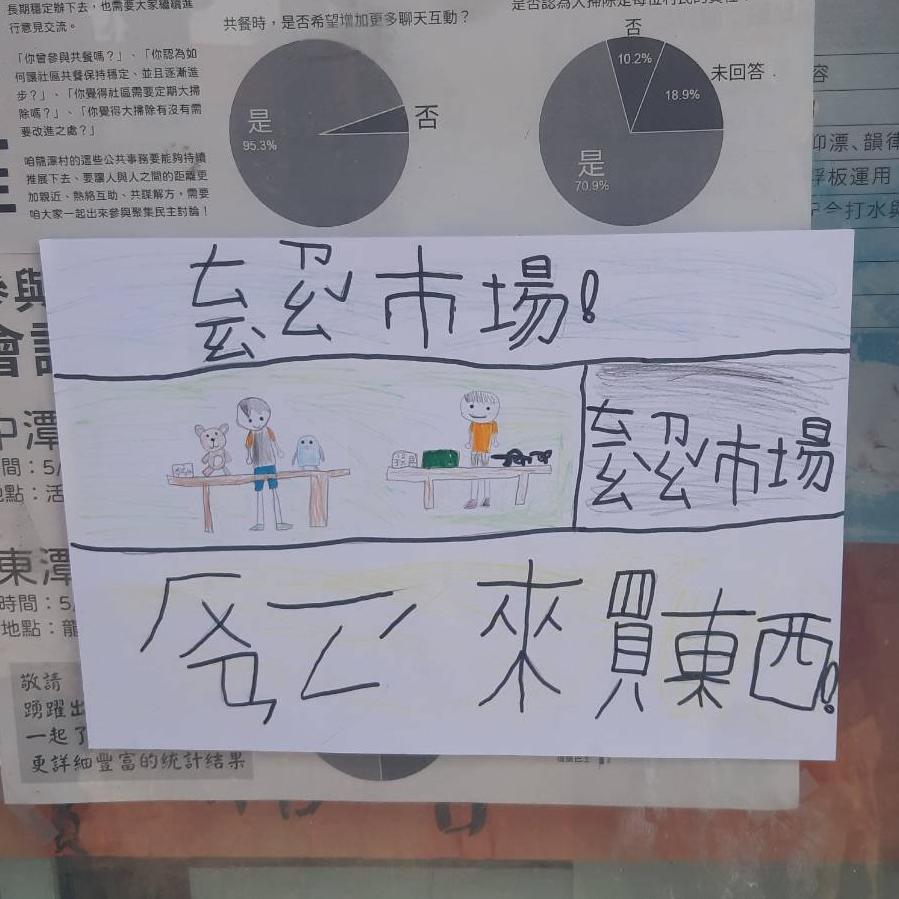 長期穩定辦下去，也需要大家繼續進
行意見交流。
「你曾參與共餐嗎？」、「你認為如
何讓社區共餐保持穩定、並且逐漸進
步？」、「你覺得社區需要定期大掃
除嗎？」、「你覺得大掃除有沒有需
要改進之處？」
咱龍潭村的這些公共事務要能夠持續
推展下去、要讓人與人之間的距離更
加親近、熱絡互助、共謀解方，需要
咱大家一起出來參與聚集民主討論！
共餐時，是否希望增加更多聊天互動？
是
95.3%
否
否
10.2%
未回答
18.9%
是
70.9%
容
仰漂、韻律
浮板運用
打水與
參與
ㄊㄧㄠㄗㄠˇ市場!
ㄊㄧㄠㄗㄠˇ市場
ㄏㄨㄢㄧㄥˊ來買東西!
中潭
間：5/
地點：活
東潭
時間：5/
地點：龍
敬請
踴躍出
一起了
更詳細豐富的統計結果